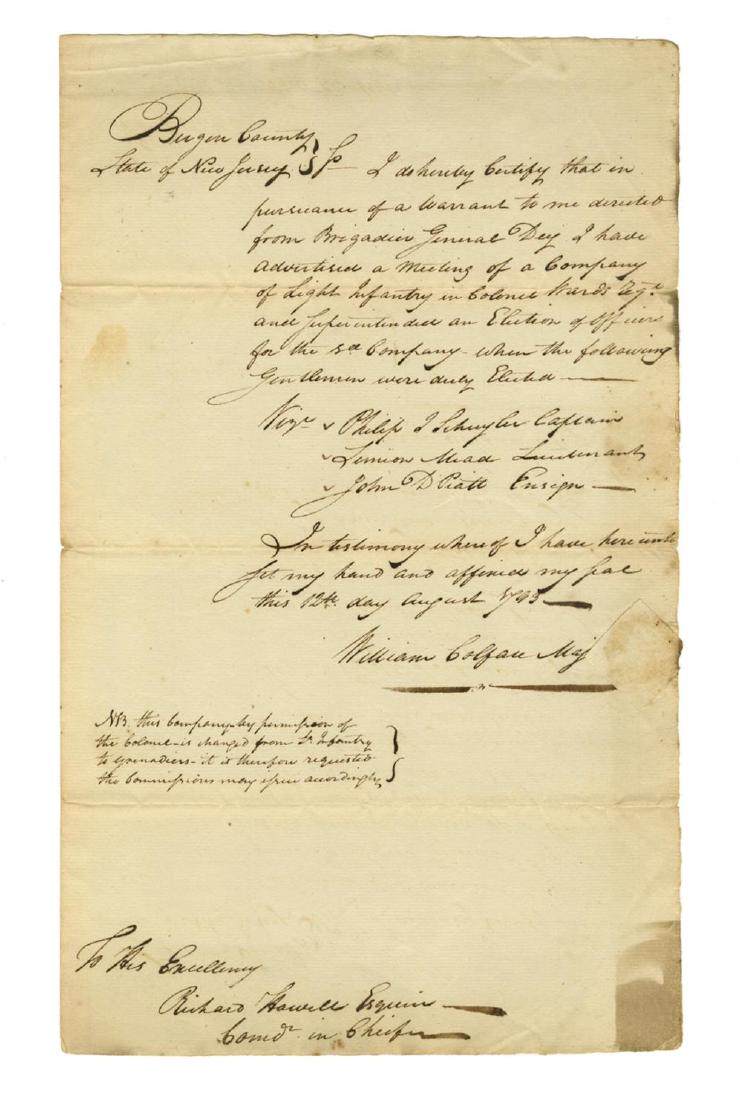 Bergen County
State of New Jersey } Ss I do hereby Certify that in
pursuance of a Warrant to me directed
from Brigadier General Dey I have
advertised a Meeting of a Company
of Light Infantry in Colonel Wards Regt.
and Superintended an Election of Officers
for the sd. Company - when the following
Gentlemen were duly Elected —
Vizt. Philip J Schuyler Captain
Simion Mead Lieutenant
John D Piatt Ensign —
In testimony where of I have here unto
Set my hand and affixed my Seal
this 12th. day August 1793 —
William Colfax Maj
NB. this Company by permission of
the Colonel - is changed from Lt. Infantry
to Grenadiers - it is therefore requested
the Commissions may issue accordingly
To His Excellency
Richard Howell Esquire —
Comdr. in Chief